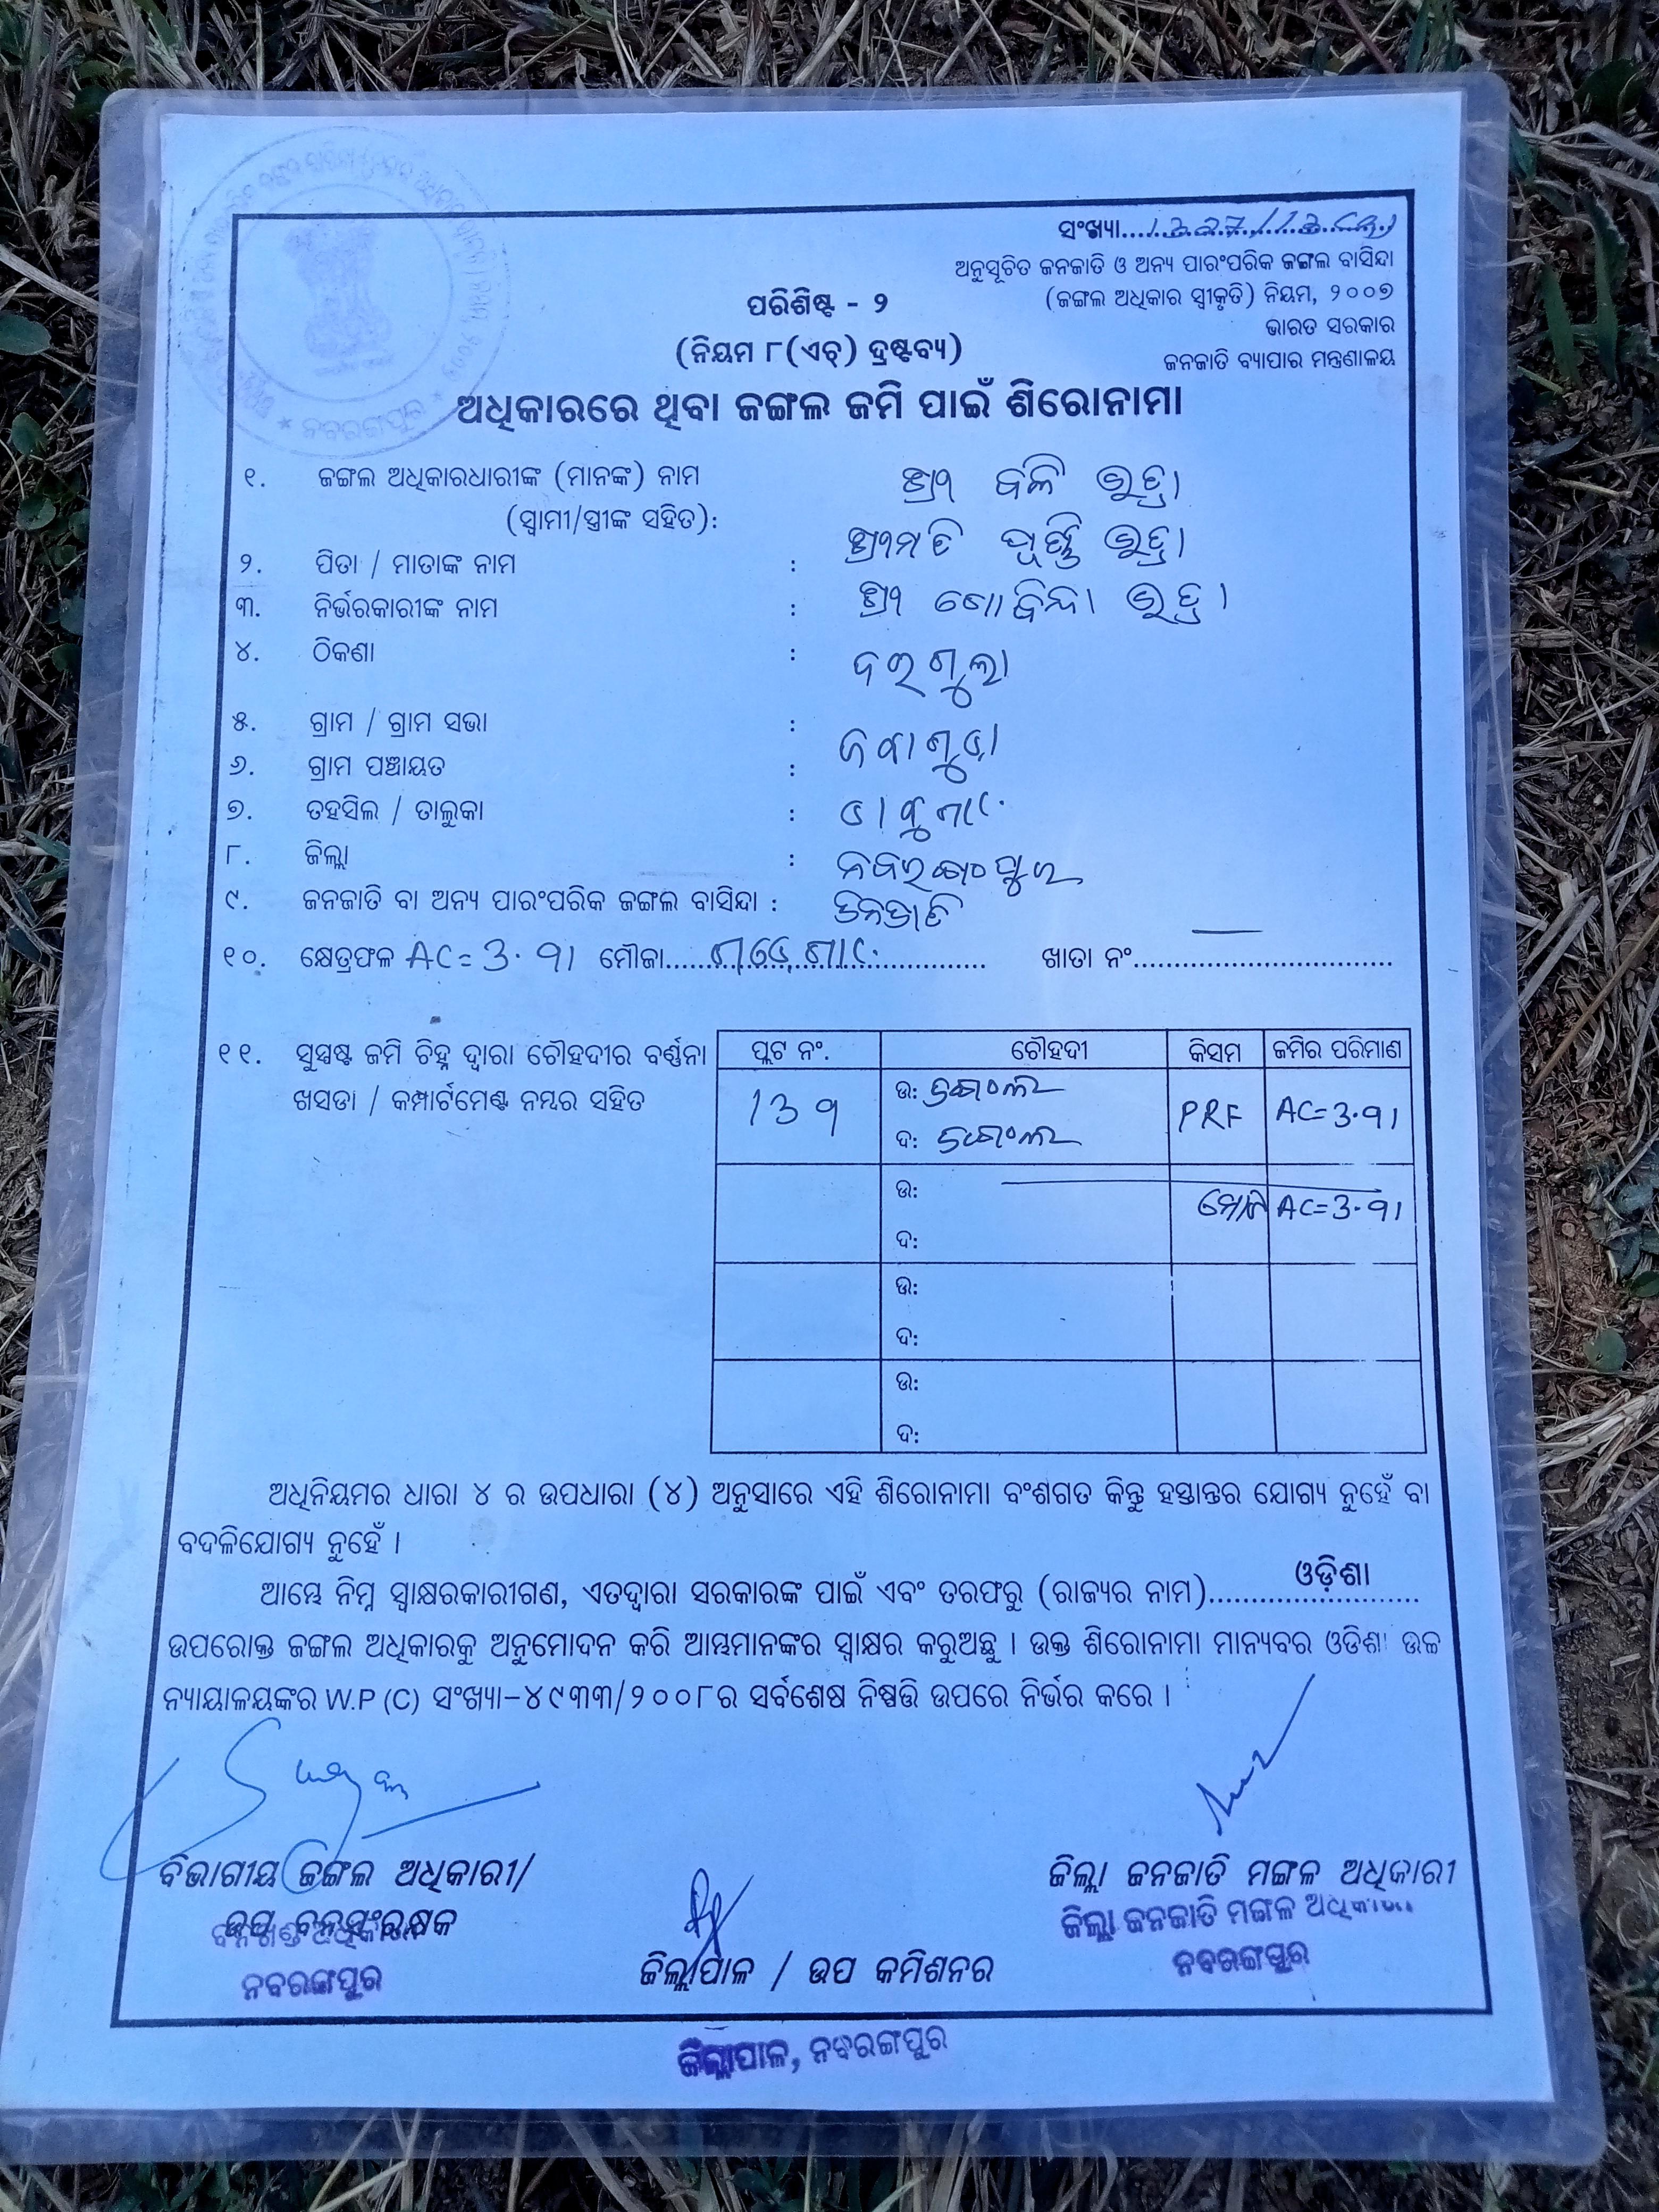 ସଂଖ୍ୟା
ଅନୁସୂଚିତ ଜନଜାତି ଓ ଅନ୍ୟ ପାରଂପରିକ ଜଙ୍ଗଲ ବାସିନ୍ଦା
(ଜଙ୍ଗଲ ଅଧିକାର ସ୍ୱୀକୃତି) ନିୟମ, ୨୦୦୭
ଭାରତ ସରକାର
ଜନଜାତି ବ୍ୟାପାର ମନ୍ତ୍ରଣାଳୟ
ପରିଶିଷ୍ଟ - ୨
(ନିୟମ ୮(ଏଚ୍) ଦ୍ରଷ୍ଟବ୍ୟ)
ଅଧିକାରରେ ଥିବା ଜଙ୍ଗଲ ଜମି ପାଇଁ ଶିରୋନାମା
୧. ଜଙ୍ଗଲ ଅଧିକାରଧାରୀଙ୍କ (ମାନଙ୍କ) ନାମ ଶ୍ରୀ ବଳି ଭତ୍ରା
(ସ୍ୱାମୀ/ସ୍ତ୍ରୀଙ୍କ ସହିତ): ଶ୍ରୀମତି ଭତ୍ରା
୨. ପିତା / ମାତାଙ୍କ ନାମ : ଶ୍ରୀ ଗୋବିନ୍ଦା ଭତ୍ରା
୩. ନିର୍ଭରକାରୀଙ୍କ ନାମ :
୪. ଠିକଣା :
୫. ଗ୍ରାମ / ଗ୍ରାମ ସଭା :
୬. ଗ୍ରାମ ପଞ୍ଚାୟତ :
୭. ତହସିଲ / ତାଲୁକା :
୮. ଜିଲ୍ଲା : ନବରଙ୍ଗପୁର
୯. ଜନଜାତି ବା ଅନ୍ୟ ପାରଂପରିକ ଜଙ୍ଗଲ ବାସିନ୍ଦା : ଜନଜାତି
୧୦. କ୍ଷେତ୍ରଫଳ AC=3.91 ମୌଜା ଖାତା ନଂ
୧୧. ସୁସ୍ପଷ୍ଟ ଜମି ଚିହ୍ନ ଦ୍ୱାରା ଚୌହଦୀର ବର୍ଣ୍ଣନା
ଖସଡା / କମ୍ପାର୍ଟମେଣ୍ଟ ନମ୍ବର ସହିତ
ପ୍ଲଟ ନଂ. ଚୌହଦୀ କିସମ ଜମିର ପରିମାଣ
139 ଉ: ଜଙ୍ଗଲ PRF AC=3.91
ଦ: ଜଙ୍ଗଲ
ଉ: ମୋଟ AC=3.91
ଦ:
ଉ:
ଦ:
ଉ:
ଦ:
ଅଧିନିୟମର ଧାରା ୪ ର ଉପଧାରା (୪) ଅନୁସାରେ ଏହି ଶିରୋନାମା ବଂଶଗତ କିନ୍ତୁ ହସ୍ତାନ୍ତର ଯୋଗ୍ୟ ନୁହେଁ ବା
ବଦଳିଯୋଗ୍ୟ ନୁହେଁ ।
ଆମ୍ଭେ ନିମ୍ନ ସ୍ୱାକ୍ଷରକାରୀଗଣ, ଏତଦ୍ୱାରା ସରକାରଙ୍କ ପାଇଁ ଏବଂ ତରଫରୁ (ରାଜ୍ୟର ନାମ) ଓଡ଼ିଶା
ଉପରୋକ୍ତ ଜଙ୍ଗଲ ଅଧିକାରକୁ ଅନୁମୋଦନ କରି ଆମ୍ଭମାନଙ୍କର ସ୍ୱାକ୍ଷର କରୁଅଛୁ । ଉକ୍ତ ଶିରୋନାମା ମାନ୍ୟବର ଓଡିଶା ଉଚ୍ଚ
ନ୍ୟାୟାଳୟଙ୍କର W.P (C) ସଂଖ୍ୟା–୪୯୩୩/୨୦୦୮ର ସର୍ବଶେଷ ନିଷ୍ପତ୍ତି ଉପରେ ନିର୍ଭର କରେ ।
ବିଭାଗୀୟ ଜଙ୍ଗଲ ଅଧିକାରୀ/
ଉପ ବନସଂରକ୍ଷକ
ନବରଙ୍ଗପୁର
ଜିଲ୍ଲାପାଳ / ଉପ କମିଶନର
ଜିଲ୍ଲାପାଳ, ନବରଙ୍ଗପୁର
ଜିଲ୍ଲା ଜନଜାତି ମଙ୍ଗଳ ଅଧିକାରୀ
ଜିଲ୍ଲା ଜନଜାତି ମଙ୍ଗଳ ଅଧିକାରୀ
ନବରଙ୍ଗପୁର